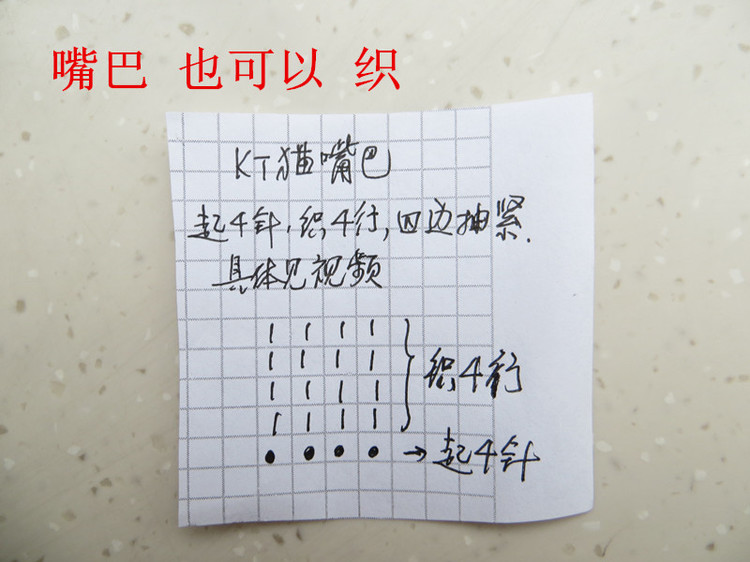 嘴巴 也可以 织
KT猫嘴巴
起4针,织4行,四边抽紧.
具体见视频
织4行
→起4针